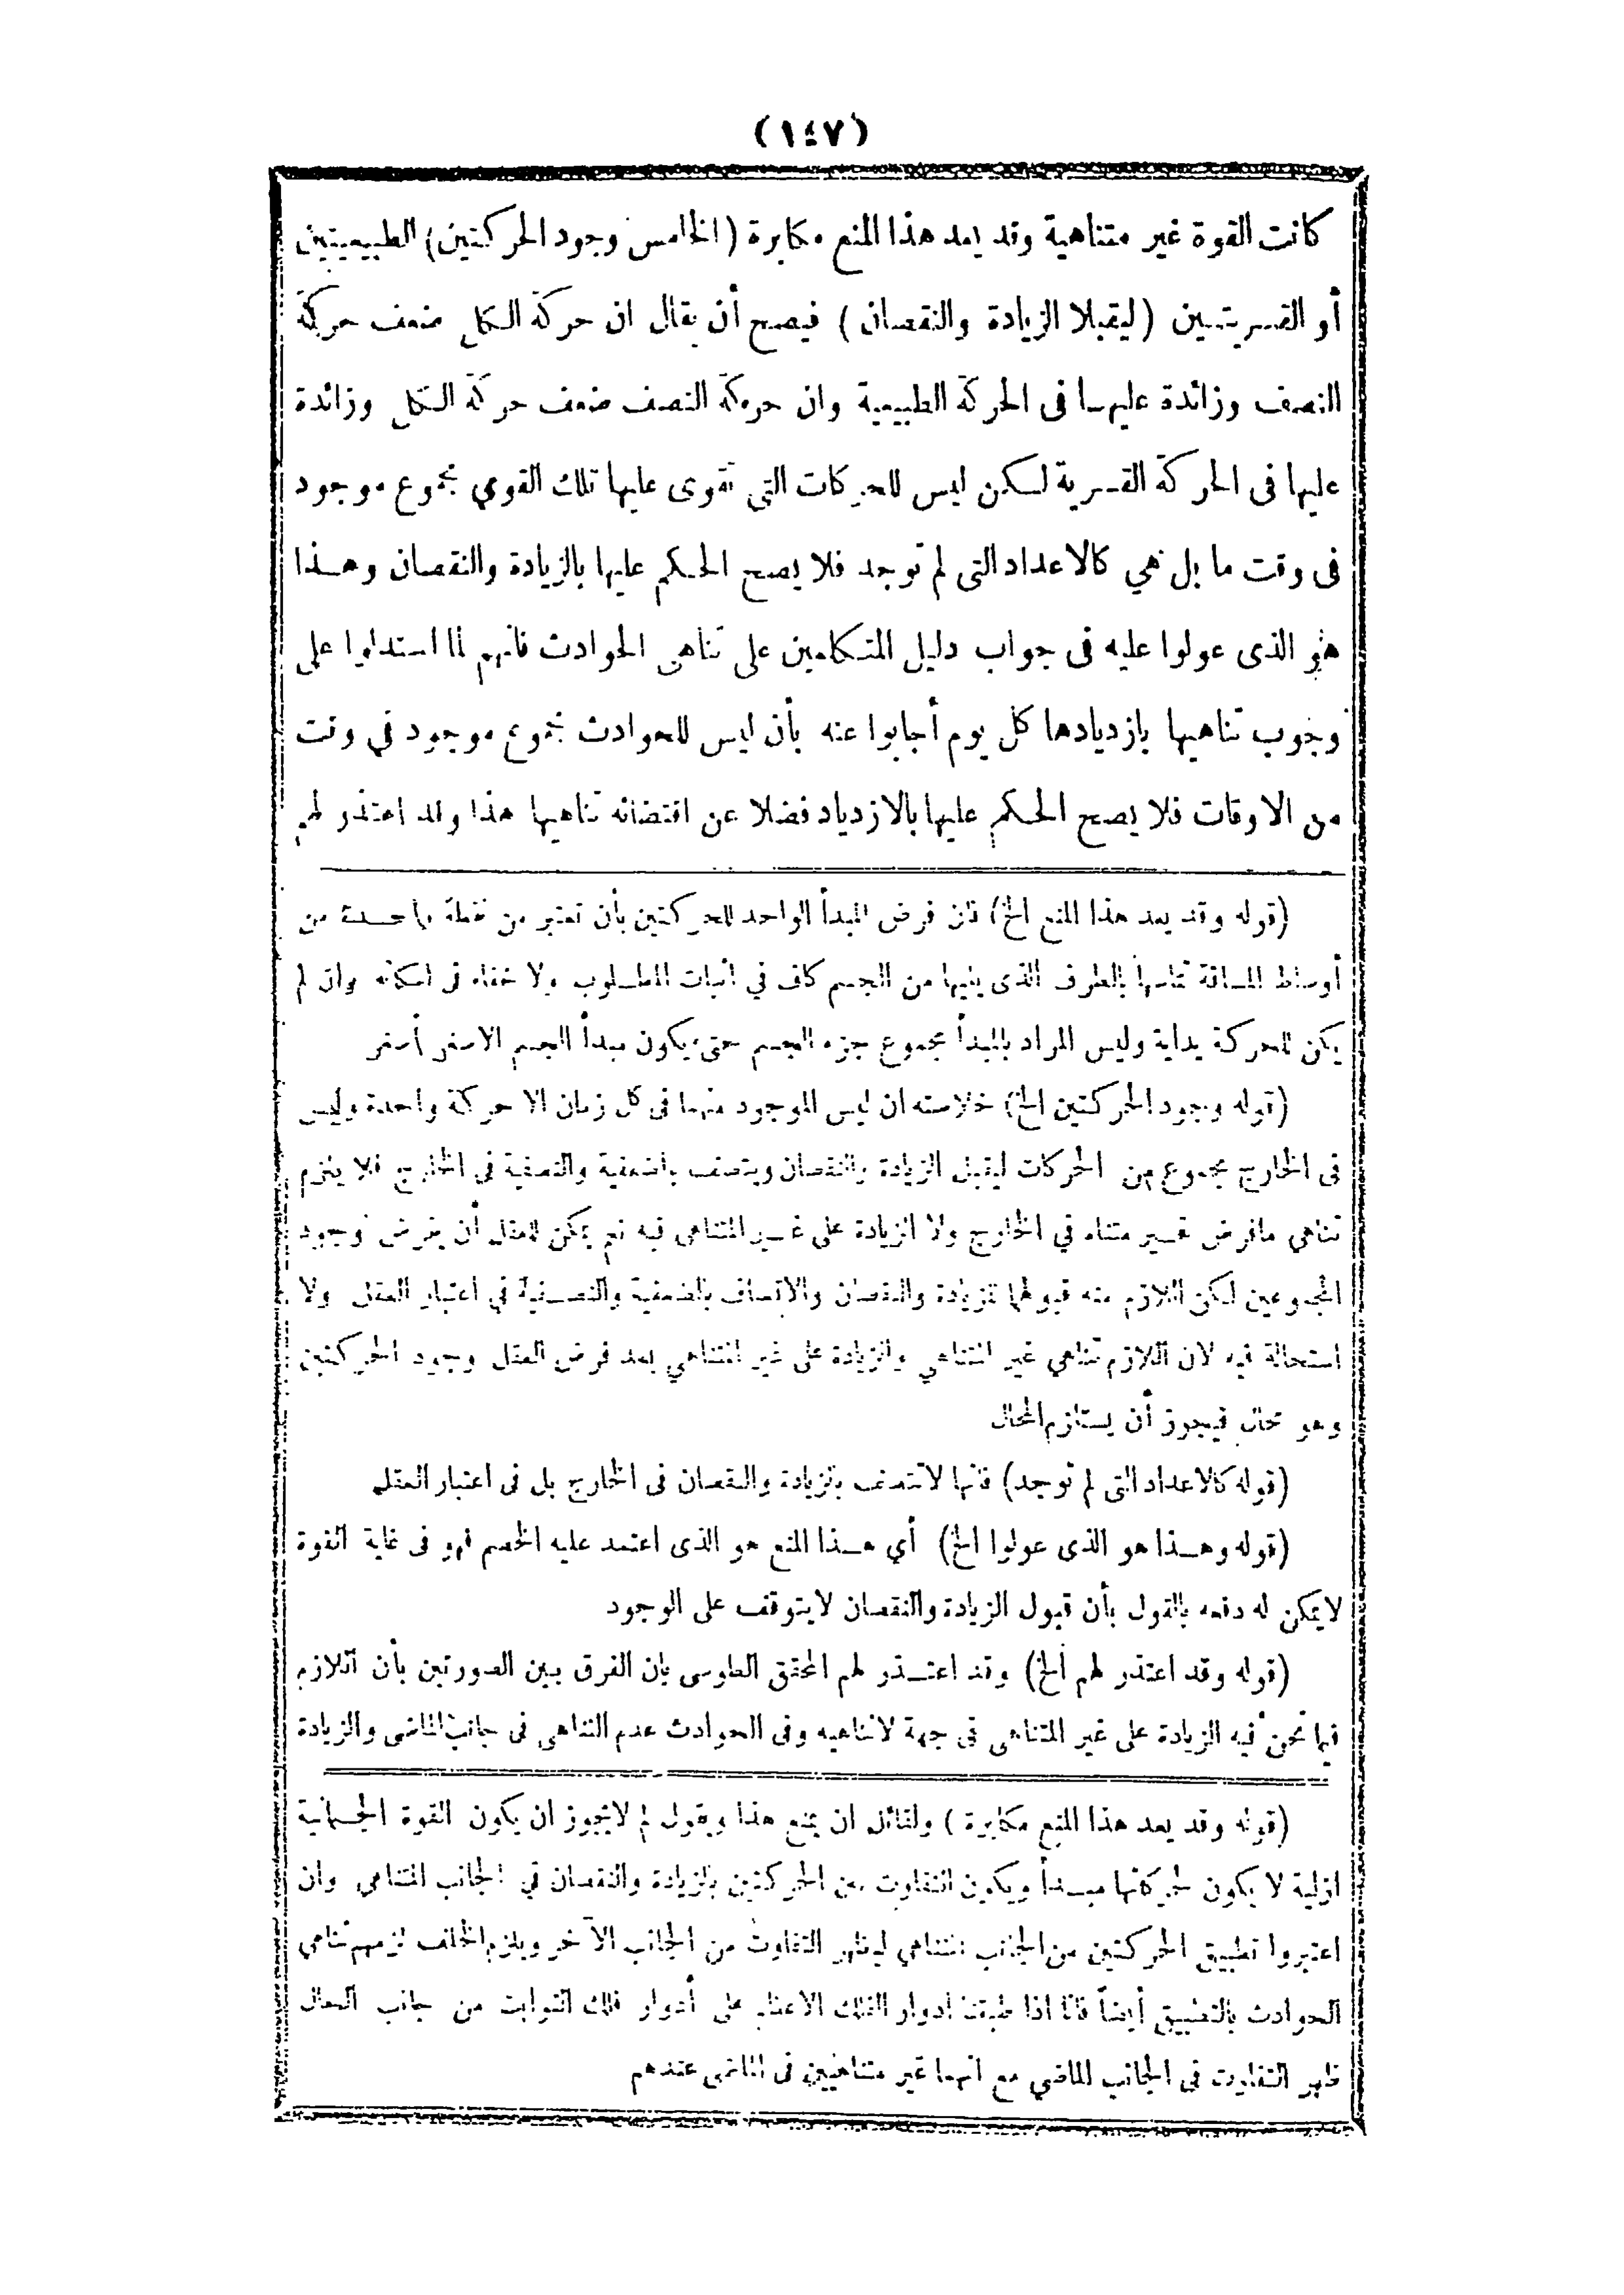 (١٤٧)
كانت القوة غير متناهية وقد يعد هذا المنع مكابرة (الخامس وجود الحركتين) الطبيعيتين
أو القسريتين (ليقبلا الزيادة والنقصان) فيصح أن يقال ان حركة الكل ضعف حركة
النصف وزائدة عليها فى الحركة الطبيعية وان حركة النصف ضعف حركة الكل وزائدة
عليها فى الحركة القسرية لكن ليس للحركات التى تقوى عليها تلك القوى مجموع موجود
فى وقت ما بل هي كالاعداد التى لم توجد فلا يصح الحكم عليها بالزيادة والنقصان وهذا
هو الذى عولوا عليه فى جواب دليل المتكلمين على تناهى الحوادث فانهم لما استدلوا على
وجوب تناهيها بازديادها كل يوم أجابوا عنه بأن ليس للحوادث مجموع موجود في وقت
من الاوقات فلا يصح الحكم عليها بالازدياد فضلا عن اقتضائه تناهيها هذا وقد اعتذر لهم
(قوله وقد يعد هذا المنع الخ) فان فرض المبدأ الواحد للحركتين بأن تعتبر من نقطة واحدة من
أوساط المسافة تماسها بالطرف الذى يليها من الجسم كاف في اثبات المطلوب ولا خفاء فى امكانه وان لم
يكن للحركة بداية وليس المراد بالمبدأ مجموع جزء الجسم حتى يكون مبدأ الجسم الاصغر أصغر
(قوله وجود الحركتين الخ) خلاصته ان ليس الموجود منهما فى كل زمان الا حركة واحدة وليس
فى الخارج مجموع من الحركات ليقبل الزيادة والنقصان ويتصف بالضعفية والنصفية في الخارج فلا يلزم
تناهي مافرض غير متناه في الخارج ولا الزيادة على غير المتناهى فيه نعم يمكن للعقل أن يفرض وجود
المجموعين لكن اللازم منه قبولهما للزيادة والنقصان والاتصاف بالضعفية والنصفية في اعتبار العقل ولا
استحالة فيه لان اللازم تناهي غير المتناهي والزيادة على غير المتناهي بعد فرض العقل وجود الحركتين
وهو محال فيجوز أن يستلزم المحال
(قوله كالاعداد التى لم توجد) فانها لاتتصف بالزيادة والنقصان فى الخارج بل فى اعتبار العقل
(قوله وهذا هو الذى عولوا الخ) أي هذا المنع هو الذى اعتمد عليه الخصم فهو فى غاية القوة
لايمكن له دفعه بالقول بأن قبول الزيادة والنقصان لايتوقف على الوجود
(قوله وقد اعتذر لهم الخ) وقد اعتذر لهم المحقق الطوسى بان الفرق بين الصورتين بأن اللازم
فيما نحن فيه الزيادة على غير المتناهى في جهة لاتناهيه وفى الحوادث عدم التناهى فى جانب الماضى والزيادة
(قوله وقد يعد هذا المنع مكابرة) ولقائل ان يمنع هذا ويقول لم لايجوز ان يكون القوة الجسمانية
ازلية لا يكون لحركاتها مبدأ ويكون التفاوت بين الحركتين بالزيادة والنقصان في الجانب المتناهي وان
اعتبروا تطبيق الحركتين من الجانب المتناهي ليظهر التفاوت من الجانب الآخر ويلزم الخلف لزمهم تناهي
الحوادث بالتطبيق أيضاً فانا اذا طبقنا ادوار الفلك الاعظم على أدوار فلك الثوابت من جانب الحال
ظهر التفاوت فى الجانب الماضي مع انهما غير متناهيين فى الماضى عندهم